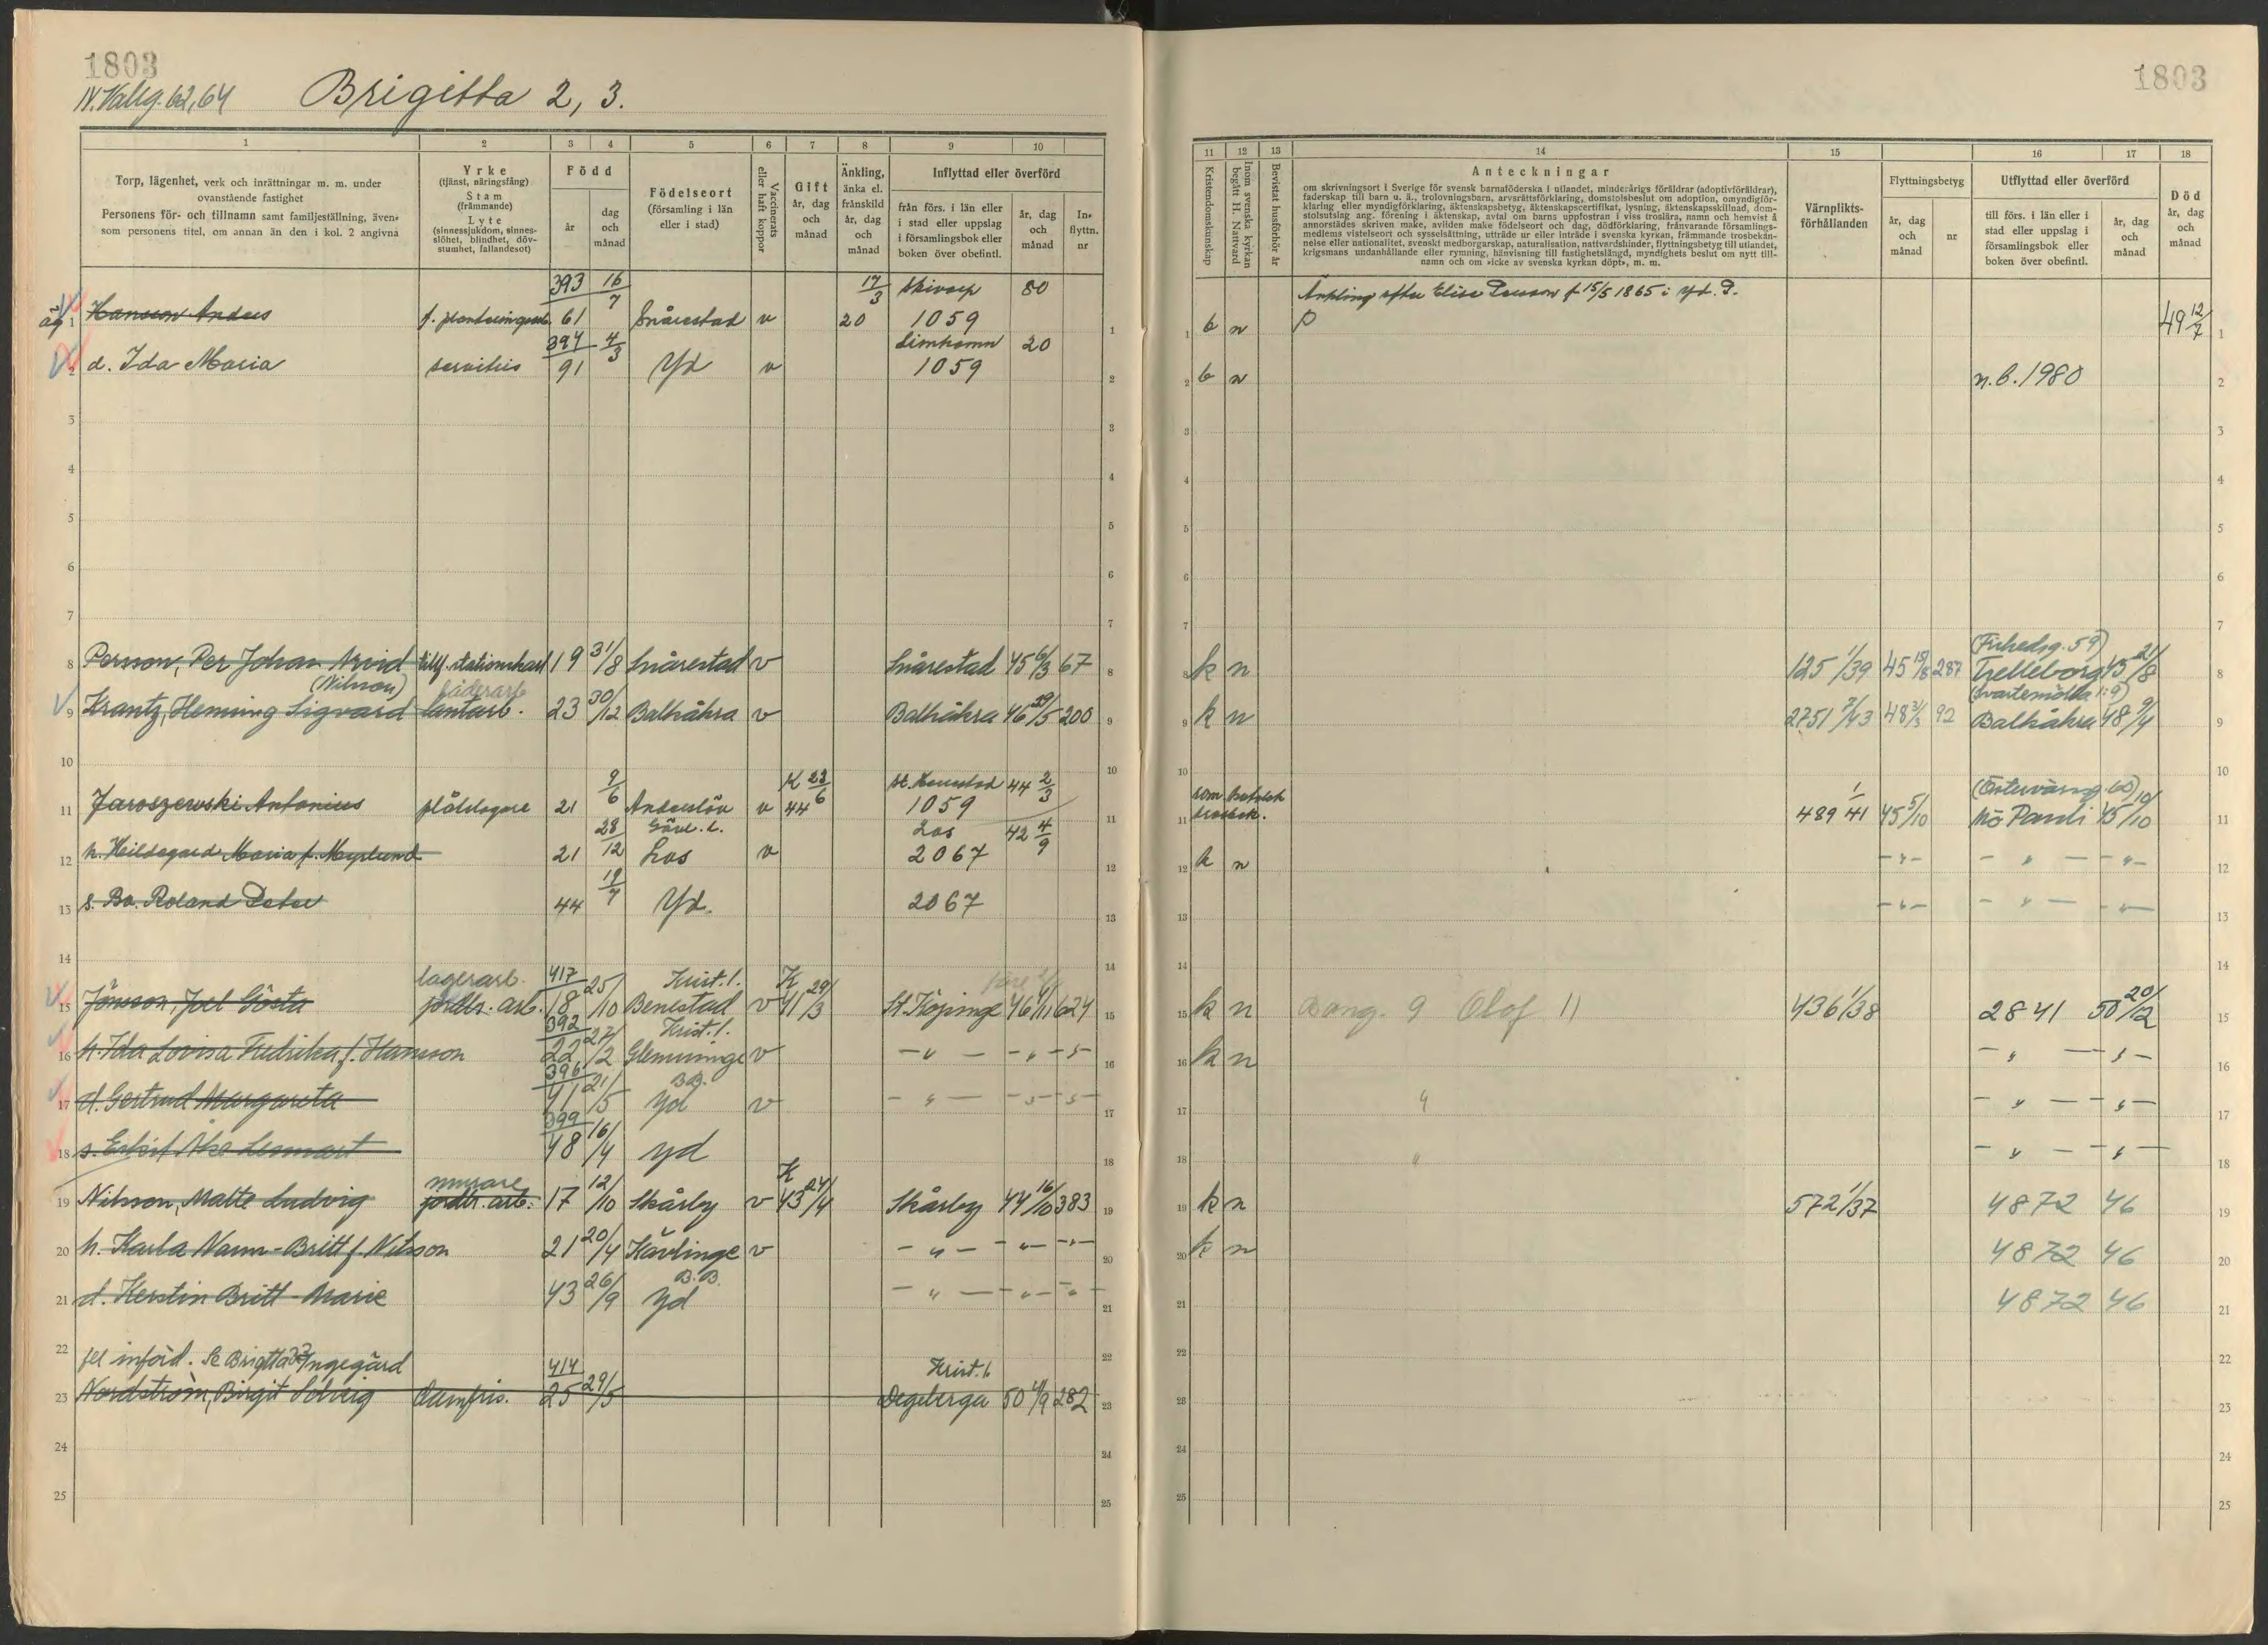 1803
1803
N. Vallg. 62, 64 Brigitta 2, 3.
1 2 3 4 5 6 7 8 9 10
11 12 13 14 15 16 17 18
Torp, lägenhet, verk och inrättningar m. m. under
ovanstående fastighet
Personens för- och tillnamn samt familjeställning, även-
som personens titel, om annan än den i kol. 2 angivna
Yrke
(tjänst, näringsfång)
Stam
(främmande)
Lyte
(sinnessjukdom, sinnes-
slöhet, blindhet, döv-
stumhet, fallandesot)
Född
år
dag
och
månad
Födelseort
(församling i län
eller i stad)
Vaccinerats
eller haft koppor
Gift
år, dag
och
månad
Änkling,
änka el.
frånskild
år, dag
och
månad
Inflyttad eller överförd
från förs. i län eller
i stad eller uppslag
i församlingsbok eller
boken över obefintl.
år, dag
och
månad
In-
flyttn.
nr
Kristendomskunskap
Inom svenska kyrkan
begått H. Nattvard
Bevistat husförhör år
Anteckningar
om skrivningsort i Sverige för svensk barnaföderska i utlandet, minderårigs föräldrar (adoptivföräldrar),
faderskap till barn u. ä., trolovningsbarn, arvsrättsförklaring, domstolsbeslut om adoption, omyndigför-
klaring eller myndigförklaring, äktenskapsbetyg, äktenskapscertifikat, lysning, äktenskapsskillnad, dom-
stolsutslag ang. förening i äktenskap, avtal om barns uppfostran i viss troslära, namn och hemvist å
annorstädes skriven make, avliden make födelseort och dag, dödförklaring, frånvarande församlings-
medlems vistelseort och sysselsättning, utträde ur eller inträde i svenska kyrkan, främmande trosbekän-
nelse eller nationalitet, svenskt medborgarskap, naturalisation, nattvardshinder, flyttningsbetyg till utlandet,
krigsmans undanhållande eller rymning, hänvisning till fastighetslängd, myndighets beslut om nytt till-
namn och om »icke av svenska kyrkan döpt», m. m.
Värnplikts-
förhållanden
Flyttningsbetyg
år, dag
och
månad
nr
Utflyttad eller överförd
till förs. i län eller i
stad eller uppslag i
församlingsbok eller
boken över obefintl.
år, dag
och
månad
Död
år, dag
och
månad
393 16/7 17/3 Skivarp 80 Änkling efter Elise Persson f 15/5 1865 i Yd. P.
äg 1 Hansson Anders 61 Snårestad v 20 1059 1 b n 49 12/2 1
394 4/3 Limhamn 20
2 d. Ida Maria servitris 91 Yd v 1059 2 b n n.b. 1980 2
3 3 3 3
4 4 4 4
5 5 5 5
6 6 6 6
7 7 7 7
8 Persson, Per Johan Arvid tillf. stationskarl 19 31/8 Snårestad v Snårestad 45 6/3 67 8 k n 125 1/39 45 18/8 287 Trelleborg 45 21/8 8
(Nilsson) läderarb
9 Krantz, Henning Sigvard lantarb. 23 30/12 Balkåkra v Balkåkra 46 29/5 200 9 k n 2751 7/43 48 3/3 92 Balkåkra 48 9/4 9
10 10 10 10
9/6 K 23/6 44 2/3
11 Jaroszewski Antonius plåtslagare 21 Anderslöv v 44 1059 11 som katolsk 489 1/41 45 5/10 Mö Pauli 45 10/10 11
28/12 Gävl. l. Los 42 4/9
12 h. Hildegard Maria f. Myrlund 21 Los v 2067 12 k n -"- - " - -"- 12
13 s. Bo. Roland Peter 44 19/7 Yd. 2067 13 -"- - " - -"- 13
14 14 14 14
lagerarb. 417 Krist. l. K
15 Jönsson, Joel Gösta jordbr. arb. 18 25/10 Benestad v 41 29/3 St. Köpinge 46 1/11 624 15 k n Bang. 9 Olof 11 436 1/38 2841 50 20/2 15
392 Krist. l.
16 h. Ida Lovisa Fredrika f. Hansson 22 27/2 Glemminge v -"- -"- -"- 16 k n -"- -"- 16
396 B.B.
17 d. Gertrud Margareta 41 21/5 Yd v -"- -"- -"- 17 " -"- -"- 17
399
18 s. Eskil Åke Lennart 48 16/4 yd 18 " -"- -"- 18
murare K
19 Nilsson, Malte Ludvig jordbr. arb. 17 12/10 Skårby v 43 24/4 Skårby 44 16/10 383 19 k n 572 1/37 4872 46 19
20 h. Karla Nann-Britt f. Nilsson 21 20/4 Kävlinge v -"- -"- -"- 20 k n 4872 46 20
B.B.
21 d. Kerstin Britt-Marie 43 26/9 Yd -"- -"- -"- 21 4872 46 21
22 fel införd. Se Brigitta Ingegärd 414 Krist. l. 22
23 Nordström, Birgit Solveig damfris. 25 29/5 Degeberga 50 4/9 282 23
24 24 24 24
25 25 25 25